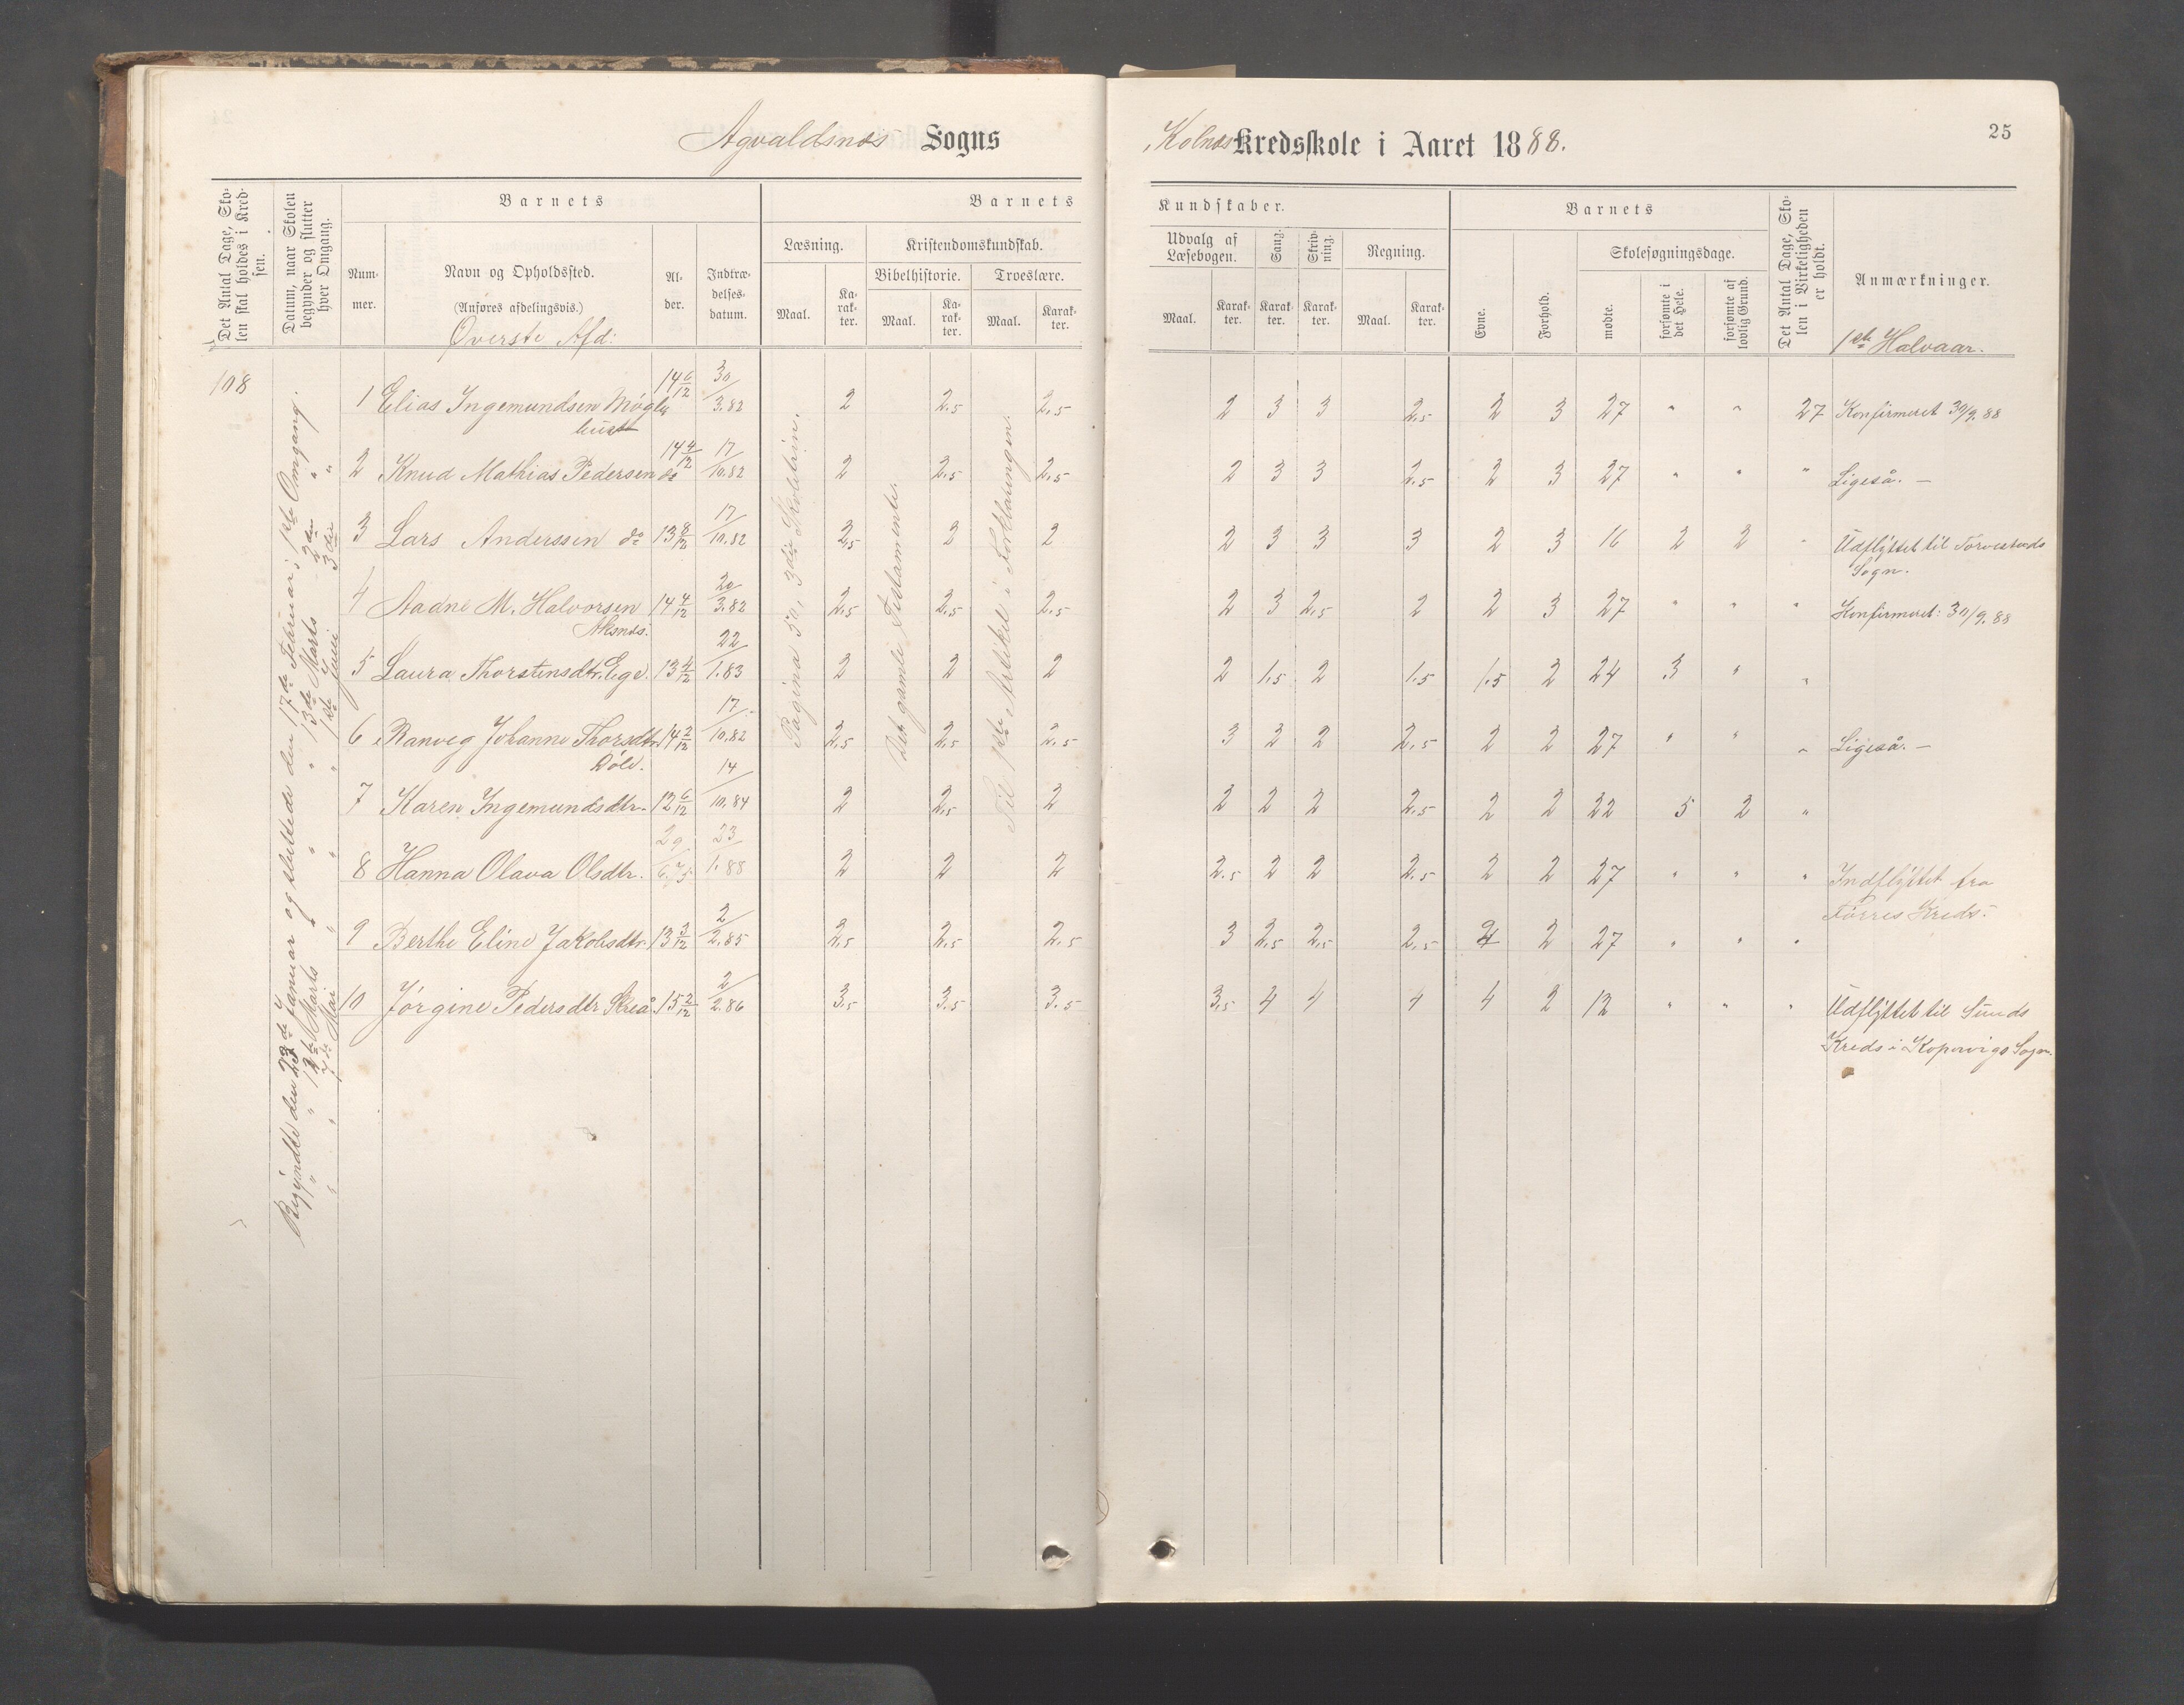 Agvaldsnæs Sogns
Kolnæs Kredsskole i Aaret 1888.
25
Det Antal Dage, Skolen skal holdes i Kredsen.
Datum, naar Skolen begynder og slutter hver Omgang.
Barnets
Barnets
Kundskaber.
Barnets
Det Antal Dage, Skolen i Virkeligheden er holdt.
Anmærkninger.
Nummer.
Navn og Opholdssted.
(Anføres afdelingsvis.)
Alder.
Indtrædelsesdatum.
Læsning.
Kristendomskundskab.
Bibelhistorie.
Troeslære.
Udvalg af Læsebogen.
Sang.
Skrivning.
Regning.
Evne.
Forhold.
Skolesøgningsdage.
mødte.
forsømte i det Hele.
forsømte af lovlig Grund.
Maal. Karakter. Maal. Karakter. Maal. Karakter.
Maal. Karakter. Karakter. Karakter. Maal. Karakter.
Øverste Afd:
1ste Halvaar.
108
Begyndte den 23de Januar og sluttede den 17de Februar; 1ste Omgang.
" " 12te Marts " " " 13de Marts 2den "
" " 7de Mai " " " 1ste Juni 3die "
Pagina 50, 3die Skoletrin.
Det gamle Testamente.
Til 1ste Artikel i Forklaringen
1 Elias Ingemundsen Møgle 14 6/12 30/3.82 2 2.5 2.5 2 3 3 2.5 2 3 27 " " 27 Konfirmeret 30/9.88
hust
2 Knud Mathias Pedersen do 14 4/12 17/10.82 2 2.5 2.5 2 3 3 2.5 2 3 27 " " " Ligeså. —
3 Lars Anderssen do 13 8/12 17/10.82 2.5 2 2 2 3 3 3 2 3 16 2 2 " Udflyttet til Torvestads
Sogn.
4 Aadne M. Halvorsen 14 4/12 20/3.82 2.5 2.5 2.5 2 3 2.5 2 2 3 27 " " " Konfirmeret: 30/9.88
Aksnæs.
5 Laura Thorstensdtr. Ege. 13 4/12 22/1.83 2 2 2 2 1.5 2 1.5 1.5 2 24 3 " "
6 Ranveg Johanne Thorsdtr 14 2/12 17/10.82 2.5 2.5 2.5 3 2 2 2.5 2 2 27 " " " Ligeså. —
Døle.
7 Karen Ingemundsdtr. 12 6/12 14/10.84 2 2.5 2 2 2 2 2.5 2 2 22 5 2 "
8 Hanna Olava Olsdtr. 29/6.75 23/1.88 2 2 2 2.5 2 2 2.5 2 2 27 " " " Indflyttet fra
Førres Kreds.
9 Berthe Eline Jakobsdtr. 13 3/12 2/2.85 2.5 2.5 2.5 3 2.5 2.5 2.5 2 2 27 " " "
10 Jørgine Pedersdtr Skreå. 15 2/12 2/2.86 3.5 3.5 3.5 3.5 4 4 4 4 2 12 " " " Udflyttet til Sunds
Kreds i Kopervigs Sogn.